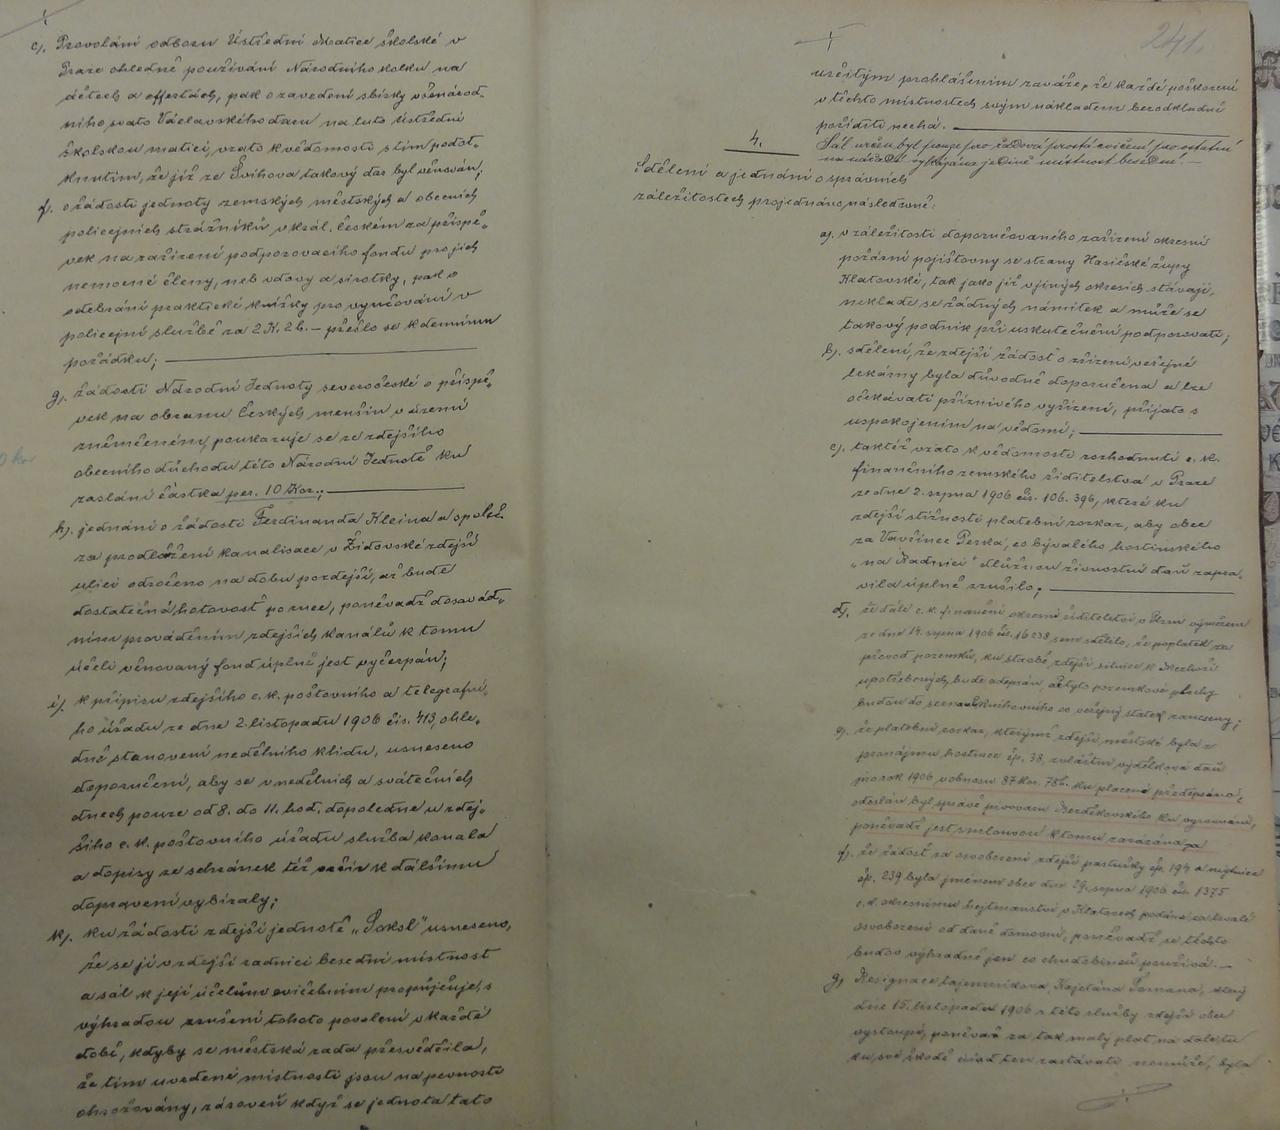 e). Provolání odboru Ústřední Matice školské v
Praze ohledně používání Národního kolku na
dětech a offertách, pak o zavedení sbírky všenárod-
ního svato Václavského daru na tuto ústřední
školskou matici, vzato k vědomosti s tím podot-
knutím, že již ze Švihova takový dar byl věnován;
f). o žádosti jednoty zemských městských a obecních
policejních strážníků v král. Českém za příspě-
vek na zařízení podporovacího fondu pro jich
nemocné členy, neb vdovy a sirotky, pak o
odebrání praktické knížky pro vyučování v
policejní službě za 2 K. 2 h. – přešlo se k dennímu
pořádku;
g). žádosti Národní Jednoty severočeské o příspě-
vek na obranu českých menšin v území
zněmčeném, poukazuje se ze zdejšího
obecního důchodu této Národní Jednotě ku
zaslání částka per. 10 Kor.;
h). jednání o žádosti Ferdinanda Kleina a společ.
za prodloužení kanalisace v Židovské zdejší
ulici odročeno na dobu pozdější, až bude
dostatečná hotovost po ruce, poněvadž dosavad-
ním prováděním zdejších kanálů k tomu
účeli věnovaný fond úplně jest vyčerpán;
i). k přípisu zdejšího c. k. poštovního a telegrafní-
ho úřadu ze dne 2. listopadu 1906 čís. 413, ohle-
dně stanovení nedělního klidu, usneseno
doporučení, aby se v nedělních a svátečních
dnech pouze od 8. do 11. hod. dopoledne u zdej-
šího c. k. poštovního úřadu služba konala
a dopisy ze schránek též k dalšímu
dopravení vybíraly;
k). ku žádosti zdejší jednotě „Sokol" usneseno,
že se jí v zdejší radnici besední místnost
a sál k její účelům cvičebním propůjčuje, s
výhradou zrušení tohoto povolení v každé
době, kdyby se městská rada přesvědčila,
že tím uvedené místnosti jsou na pevnosti
ohrožovány, zároveň když se jednota tato
241.
určitým prohlášením zaváže, že každé poškození
v těchto místnostech svým nákladem bezodkladně
poříditi nechá.
Sál určen byl pouze pro řadová prostá cvičení, pro ostatní
na nářadí vykázána jedině místnost besední. —
4.
Sdělení a jednání o správních
záležitostech projednáno následovně:
a). v záležitosti doporučovaného zařízení okresní
požární pojišťovny se strany Hasičské župy
Klatovské, tak jako již v jiných okresích stávají,
neklade se žádných námitek a může se
takový podnik při uskutečnění podporovati;
b). sdělení, že zdejší žádost o zřízení veřejné
lekárny byla důvodně doporučena a lze
očekávati příznivého vyřízení, přijato s
uspokojením na vědomí;
c). taktéž vzato k vědomosti rozhodnutí c. k.
finančního zemského ředitelství v Praze
ze dne 2. srpna 1906 čís. 106.396, které ku
zdejší stížnosti platební rozkaz, aby obec
za Vavřince Peška, co bývalého hostinského
„na Radnici" dlužnou živnostní daň zapra-
vila úplně zrušilo.
d). že dále c. k. finanční okresní ředitelství v Plzni výměrem
ze dne 14. srpna 1906 čís. 16238 sem sdělilo, že poplatek za
převod pozemků, ku stavbě zdejší silnice k Mezhoří
upotřebených, bude odepsán, až tyto pozemkové plochy
budou do seznamu knihovního co veřejný statek zaneseny;
e). že platební rozkaz, kterýmž zdejší městské byla z
pronájmu hostince čp. 38, zvláštní výdělková daň
pro rok 1906 v obnosu 87 Kor. 78 h. ku placení předepsána,
odeslán byl správě pivovaru Bezděkovského ku vyrovnání,
poněvadž jest smlouvou k tomu zavázána
f). že žádost za osvobození zdejší pastušky čp. 194 a
čp. 239 byla jménem obec dne 29. srpna 1906 čís. 1375
c. k. okresnímu hejtmanství v Klatovech podána za trvalé
osvobození od daně domovní, poněvadž se těchto
budov výhradně jen co chudobinců používá. —
g). Resignace tajemníkova Kajetána Tomana, který
dne 15. listopadu 1906 z této služby zdejší obce
vystoupí, poněvadž za tak malý plat na dále tu
ku své škodě úřad ten zastávati nemůže, byla